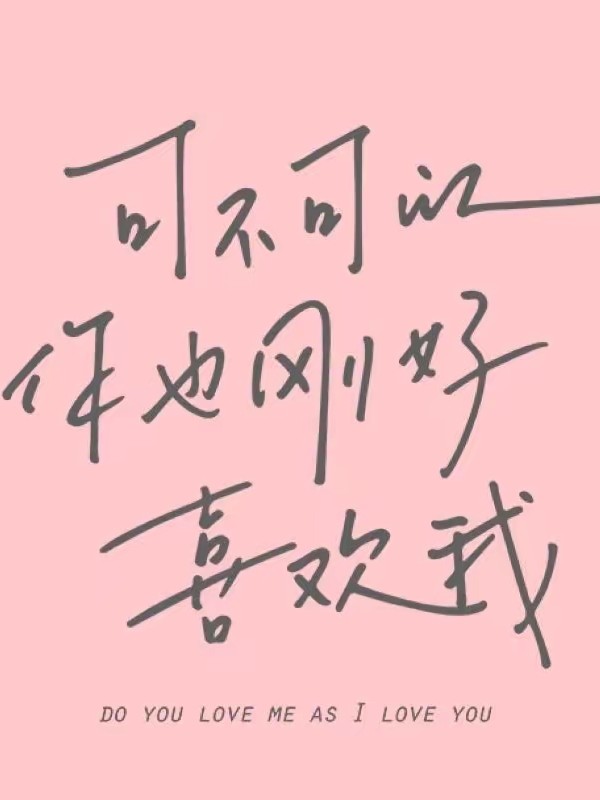 可不可以
你也刚好
喜欢我
DO YOU LOVE ME AS I LOVE YOU